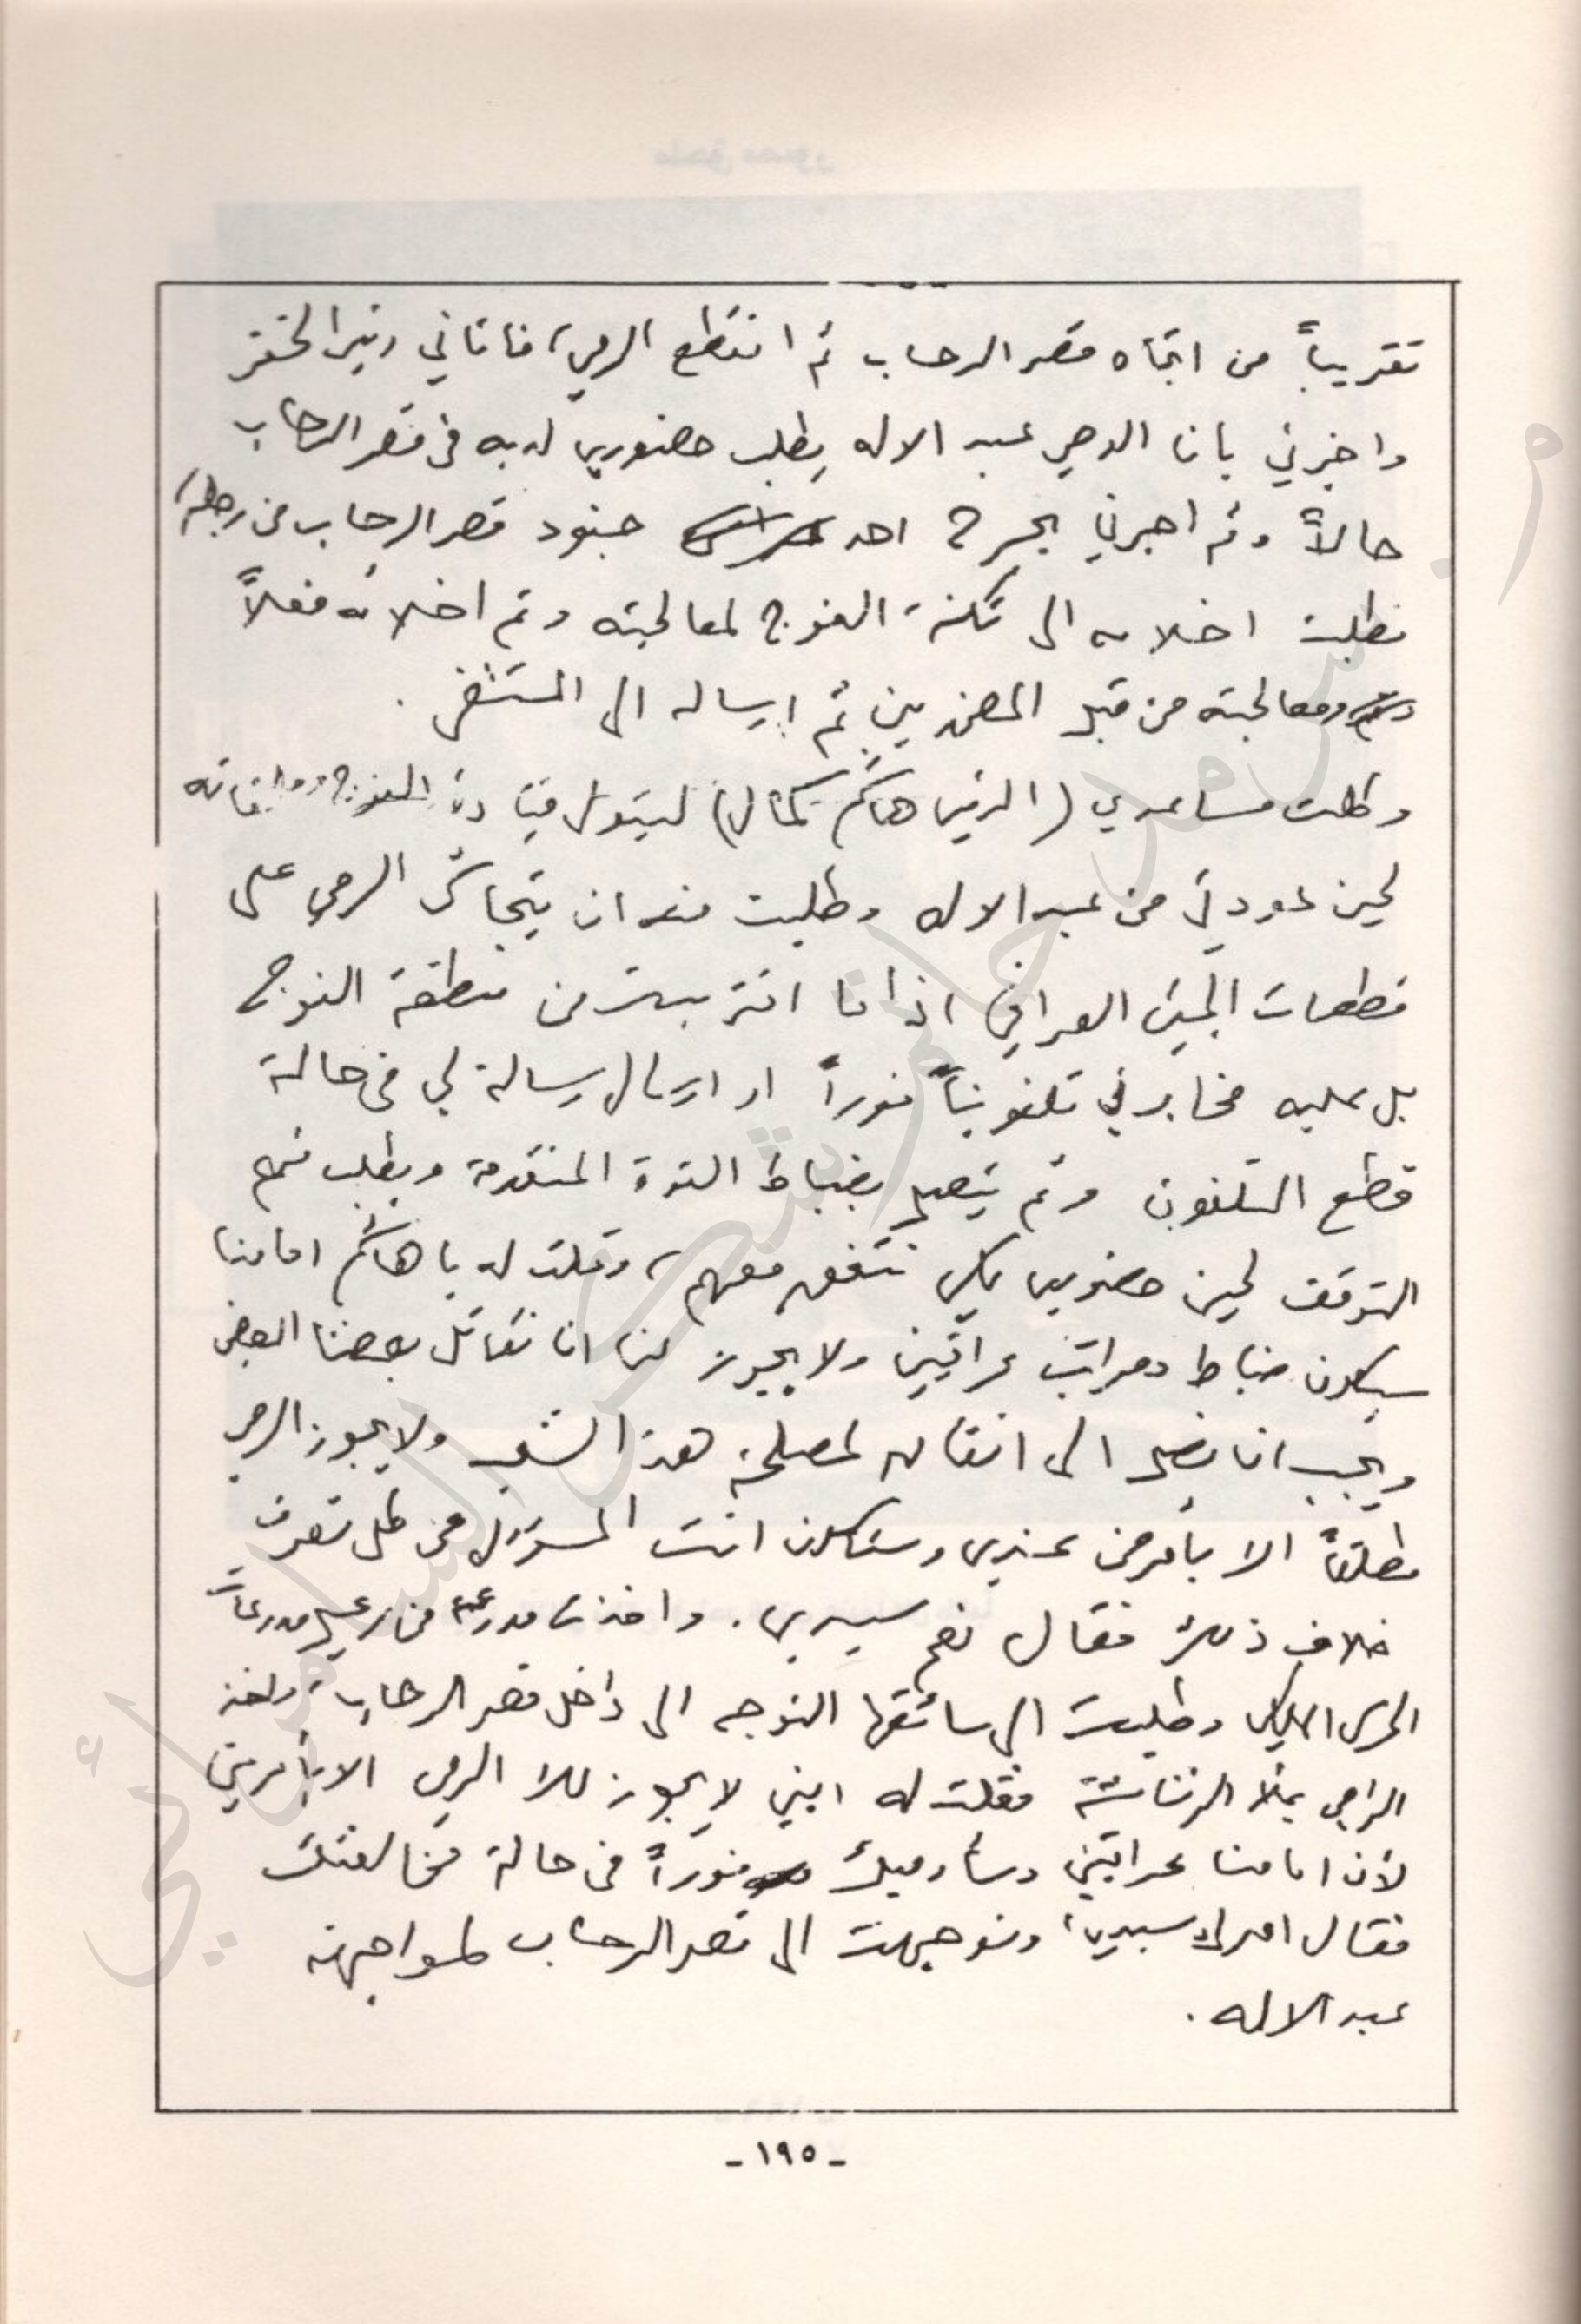 تقريباً من اتجاه قصر الرحاب ثم انقطع الرمي، فاتاني رئيس الخفر
واخبرني بان الوصي عبد الاله يطلب حضوري لديه في قصر الرحاب
حالاً وثم اخبرني بجرح احد جنود قصر الرحاب من رجله،
فطلبت اخلاءه الى ثكنة الفوج لمعالجته وتم اخلائه فعلاً
ومعالجته من قبل المضمدين ثم ارساله الى المستشفى .
وطلبت مساعدي (الرئيس هاشم كمال) ليتولى قيادة الفوج
لحين عودتي من عبد الاله وطلبت منه ان يتحاشى الرمي على
قطعات الجيش العراقي اذا ما اقتربت من منطقة الفوج
بل عليه مخابرتي تلفونياً فوراً او ارسال رسالة لي في حالة
قطع التلفون وثم يتصل بضباط القوة المتقدمة ويطلب منهم
التوقف لحين حضوري لكي نتفق معهم، وقلت له يا هاشم امامنا
سيكون ضباط ومراتب عراقيين ولا يجوز لنا ان نقاتل بعضنا البعض
ويجب ان نصل الى اتفاق لمصلحة هذا الشعب ولا يجوز الرمي
مطلقاً الا بأمر من عندي وستكون انت المسؤول عن كل تصرف
خلاف ذلك فقال نعم سيدي . واخذت مدرعة من رعيل مدرعات
الحرس الملكي وطلبت الى سائقها التوجه الى داخل قصر الرحاب، واخذ
الرامي يملأ الرشاشة فقلت له ابني لا يجوز لك الرمي الا بأمر مني
لأن امامنا عراقيين وسأرميك فوراً في حالة مخالفتك
فقال امرك سيدي، وتوجهت الى قصر الرحاب لمواجهة
عبد الاله .
- ١٩٥ -